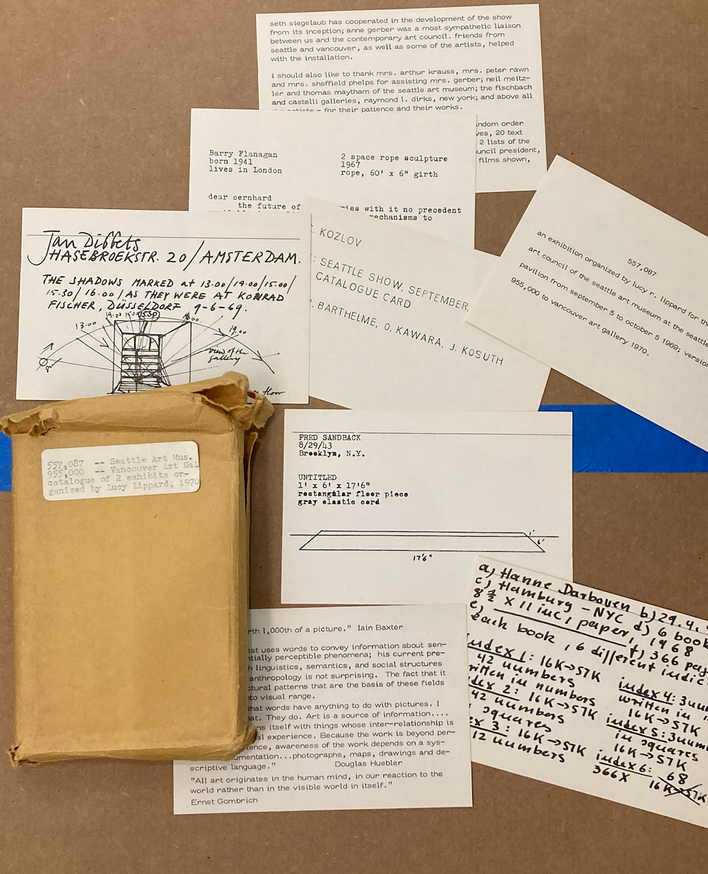 seth siegelaub has cooperated in the development of the show
from its inception; anne gerber was a most sympathetic liaison
between us and the contemporary art council. friends from
seattle and vancouver, as well as some of the artists, helped
with the installation.
i should also like to thank mrs. arthur krauss, mrs. peter rawn
and mrs. sheffield phelps for assisting mrs. gerber; neil meitz-
ler and thomas maytham of the seattle art museum; the fischbach
and castelli galleries, raymond l. dirks, new york; and above all
artists - for their patience and their works.
ndom order
ves, 20 text
2 lists of the
uncil president,
films shown,
Barry Flanagan
born 1941
lives in London
2 space rope sculpture
1967
rope, 60' x 6" girth
dear bernhard
the future of
ries with it no precedent
mechanisms to
Jan Dibbets
HASEBROEKSTR. 20/AMSTERDAM.
THE SHADOWS MARKED at 13.00/14.00/15.00/
15.30/16.00/AS THEY WERE AT KONRAD
FISCHER, DÜSSELDORF 9-6-69.
13.00
19.00
view of the
gallery
floor
. KOZLOV
: SEATTLE SHOW, SEPTEMBER,
CATALOGUE CARD
. BARTHELME, O. KAWARA, J. KOSUTH
557,087
an exhibition organized by lucy r. lippard for the
art council of the seattle art museum at the seattle
pavilion from september 5 to october 5 1969, version
955,000 to vancouver art gallery 1970.
557,087 -- Seattle Art Mus.
955,000 -- Vancouver Art Gal
catalogue of 2 exhibits or-
ganized by Lucy Lippard, 1970
FRED SANDBACK
8/29/43
Brooklyn, N.Y.
UNTITLED
1' x 6' x 17'6"
rectangular floor piece
gray elastic cord
1'
6'
17'6"
a) Hanne Darboven b) 29.4.
c) Hamburg - NYC d) 6 book
e) 8 1/2 x 11 inc, paper, 1968
f) 366 pag
each book, 6 different indic
index 1: 16K→57K
42 numbers
written in numbers
index 2: 16K→57K
42 numbers
squares
ex 3: 16K→57K
12 numbers
index 4: 3num
written in
16K→57K
index 5: 3num
in squares
16K→57K
index 6: 68
366X 16K→57K
rth 1,000th of a picture." Iain Baxter
ist uses words to convey information about sen-
ntially perceptible phenomena; his current pre-
h linguistics, semantics, and social structures
anthropology is not surprising. The fact that it
ctural patterns that are the basis of these fields
to visual range.
hat words have anything to do with pictures. I
at. They do. Art is a source of information....
rns itself with things whose inter-relationship is
al experience. Because the work is beyond per-
ience, awareness of the work depends on a sys-
umentation...photographs, maps, drawings and de-
scriptive language." Douglas Huebler
"All art originates in the human mind, in our reaction to the
world rather than in the visible world in itself."
Ernst Gombrich